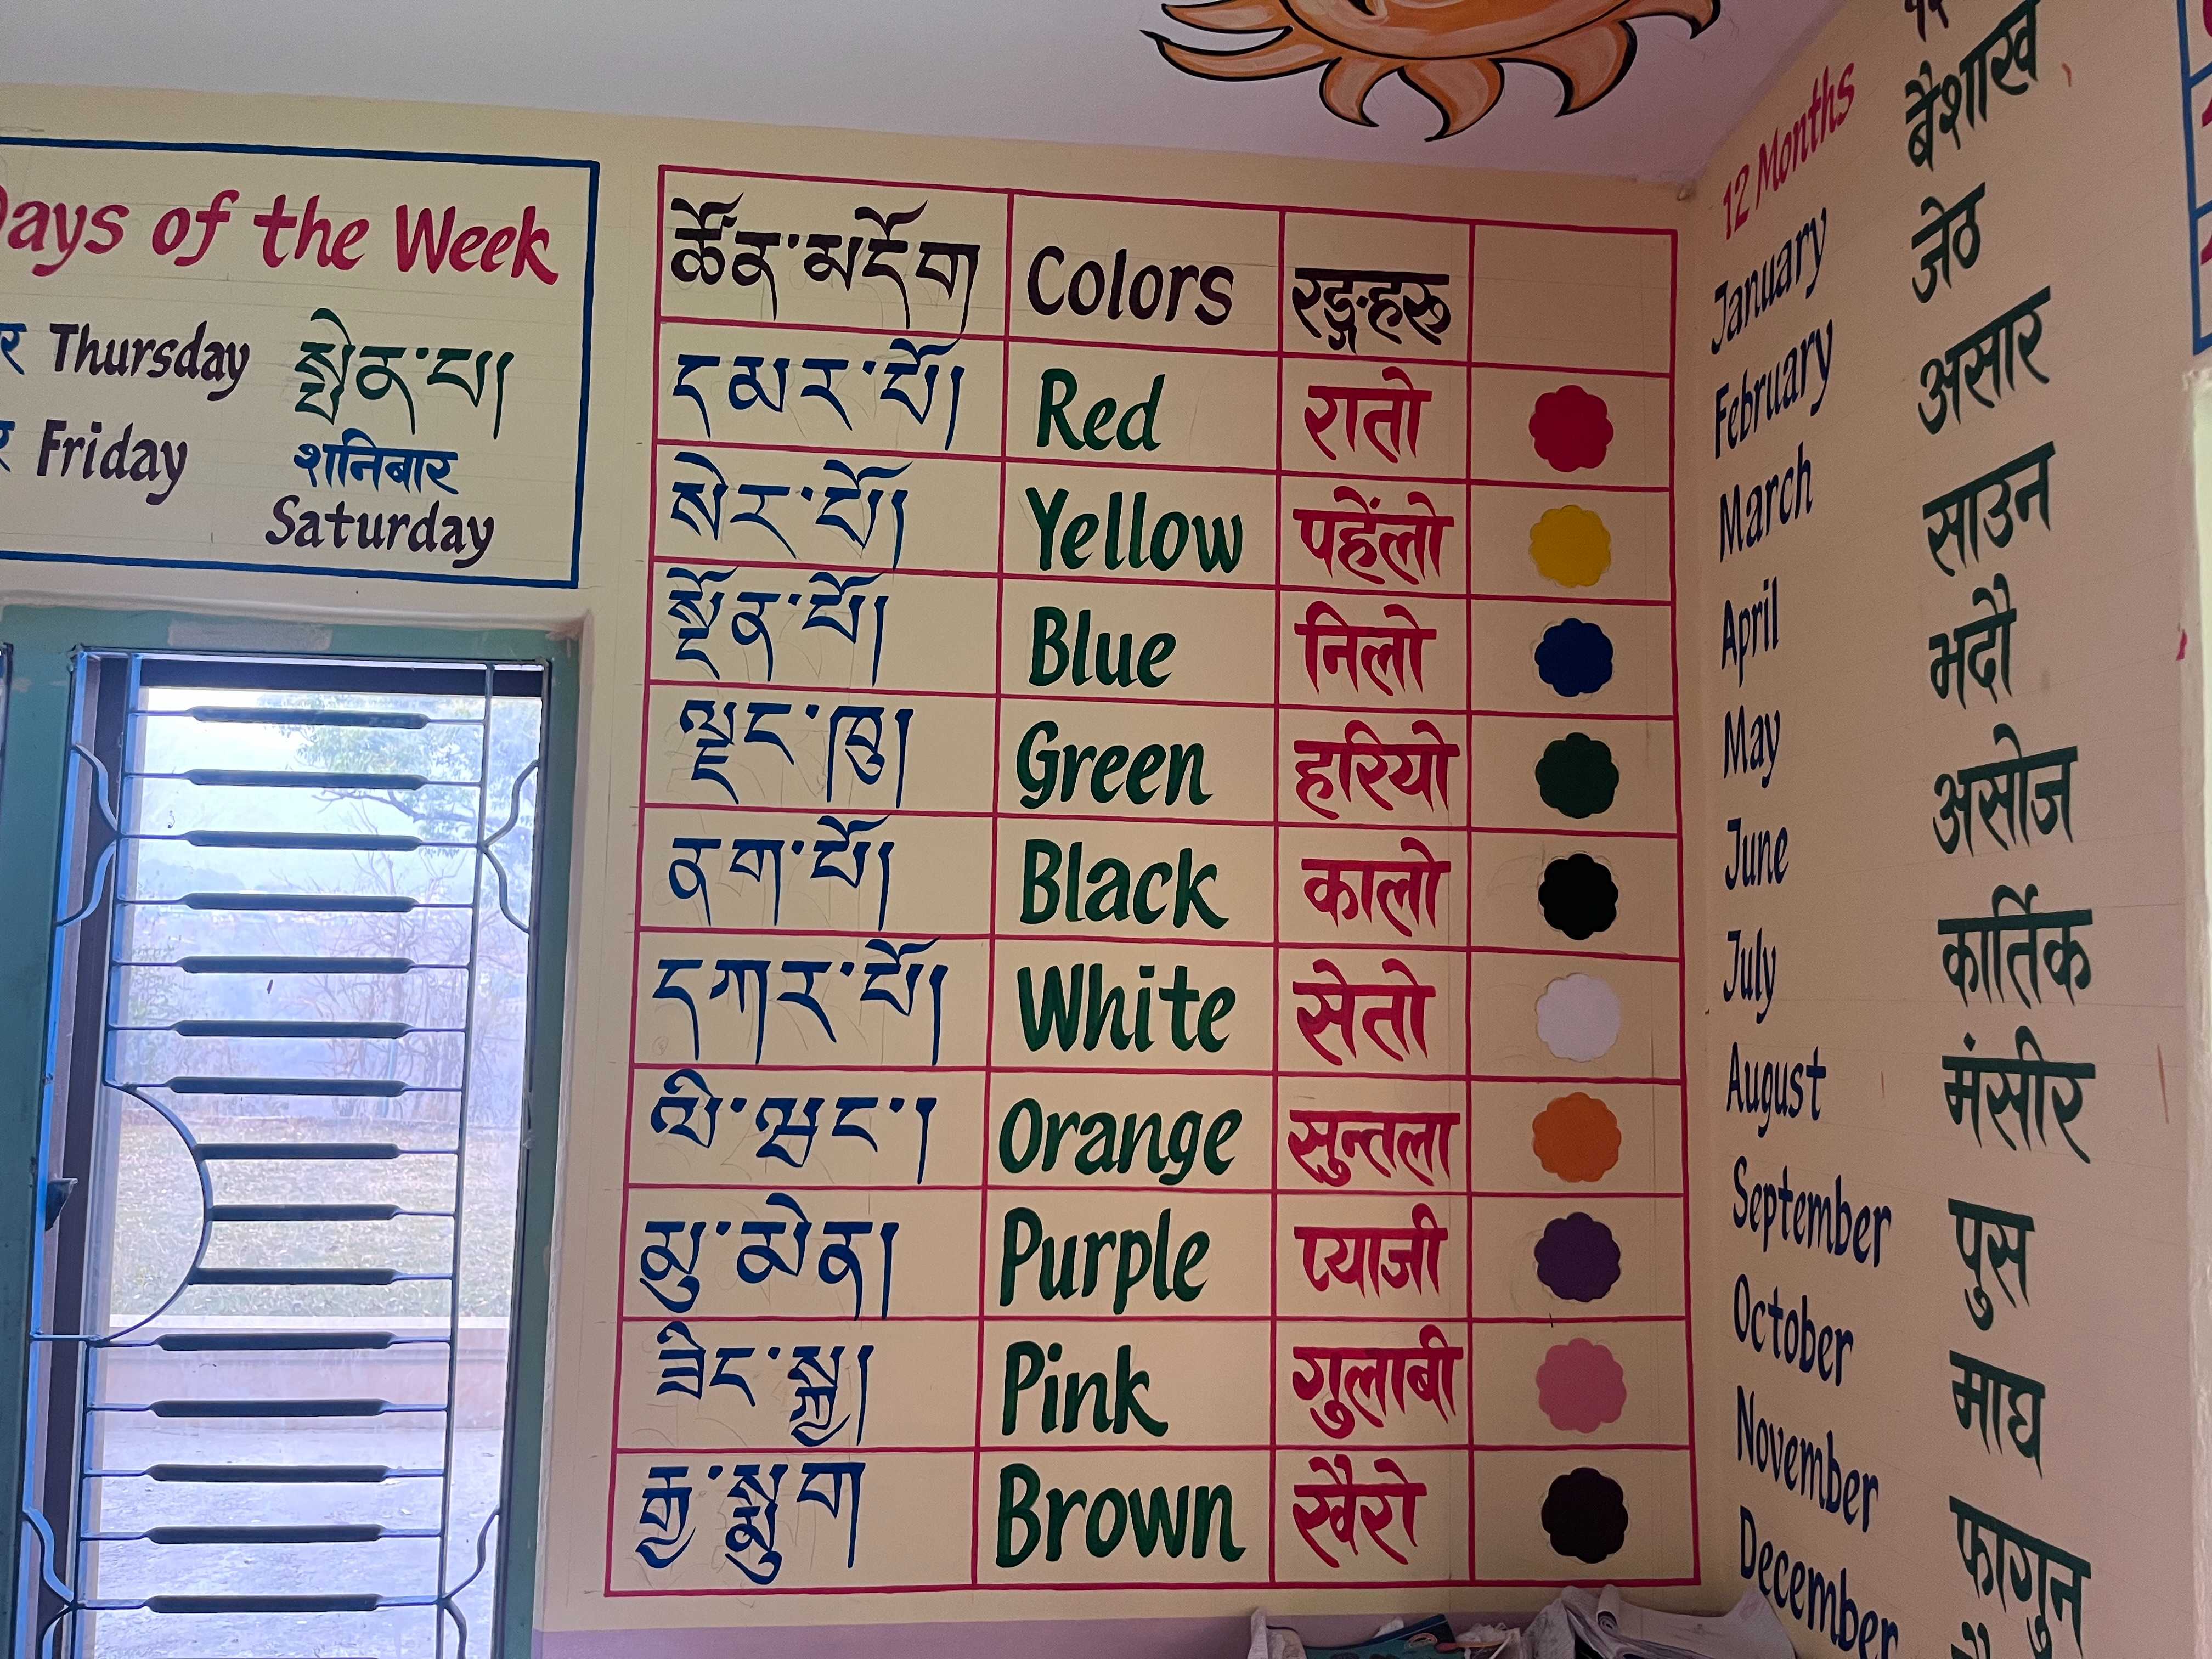 Days of the Week
Thursday སྤེན་པ།
Friday शनिबार
Saturday
ཚོན་མདོག Colors रङ्गहरू
དམར་པོ། Red रातो
སེར་པོ། Yellow पहेंलो
སྔོན་པོ། Blue निलो
ལྗང་ཁུ། Green हरियो
ནག་པོ། Black कालो
དཀར་པོ། White सेतो
ལི་ལྭང་། Orange सुन्तला
མུ་མེན། Purple प्याजी
ཟིང་སྐྱ། Pink गुलाबी
རྒྱ་སྨུག Brown खैरो
12 Months
January
February
March
April
May
June
July
August
September
October
November
December
बैशाख
जेठ
असार
साउन
भदौ
असोज
कार्तिक
मंसीर
पुस
माघ
फागुन